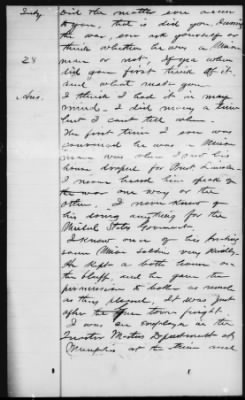 July
Did the matter ever occur
to you, that is did you, during
the war, ever ask yourself or
think whether he was a Union
28
man or not, if yea when
did you first think of it.
and what
Ans.
I think I had it in my
mind. I did many a time
but I cant tell when.
The first time I ever was
convinced he was a Union
man was when I saw his
house draped for Prest. Lincoln.
I never heard him speak of
the war one way or the
other. I never knew of
his doing anything for the
United States Government.
I knew one of his
some Union soldiers very kindly.
He kept a both house on
the bluff, and he gave them
permission to holler as much
as they pleased. It was just
after the gun town fight.
I was an employee in the
Quarter Masters Department at
Memphis at the time and